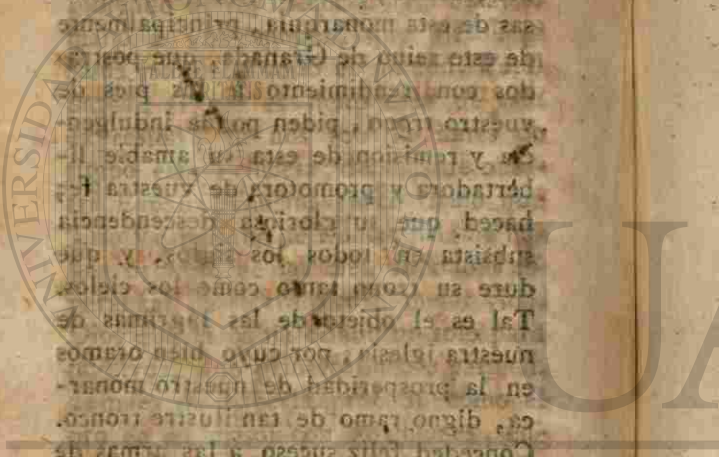 sas de esta monarquia, principalmente
de este reino de Granada, que postra-
dos con rendimiento á los pies de
vuestro trono, piden por la indulgen-
cia y remision de esta su amable li-
bertadora y promotora de vuestra fe;
haced que su gloriosa descendencia
subsista en todos los siglos, y que
dure su trono tanto como los cielos.
Tal es el objeto de las lágrimas de
nuestra iglesia, por cuyo bien oramos
en la prosperidad de nuestro monar-
ca, digno ramo de tan ilustre tronco.
Conceded feliz suceso á las armas de
UA